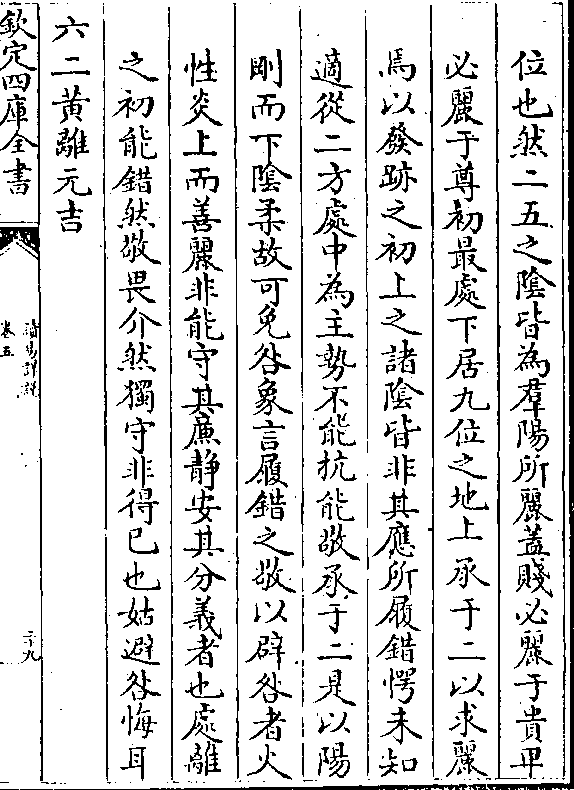 位也然二五之陰皆為羣陽所麗蓋賤必麗于貴卑
必麗于尊初最處下居九位之地上承于二以求麗
焉以發跡之初上之諸陰皆非其應所履錯愕未知
適從二方處中為主勢不能抗能敬承于二是以陽
剛而下陰柔故可免咎象言履錯之敬以辟咎者火
性炎上而善麗非能守其廉静安其分義者也處離
之初能錯然敬畏介然獨守非得已也姑避咎悔耳
六二黄離元吉
欽定四庫全書
讀易詳說
卷五
二十九